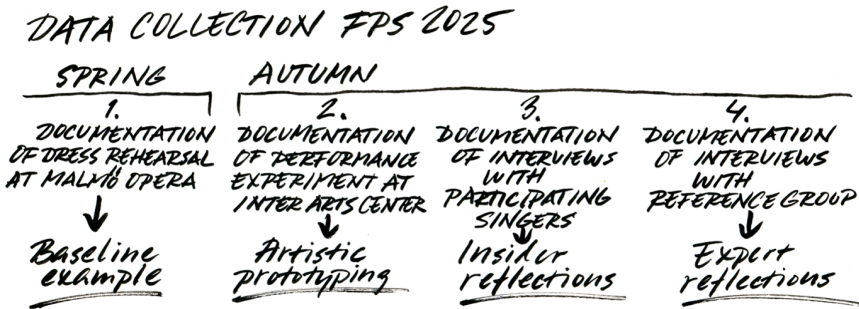 DATA COLLECTION FPS 2025
SPRING
AUTUMN
1.
DOCUMENTATION
OF DRESS REHEARSAL
AT MALMÖ OPERA
Baseline
example
2.
DOCUMENTATION
OF PERFORMANCE
EXPERIMENT AT
INTER ARTS CENTER
Artistic
prototyping
3.
DOCUMENTATION
OF INTERVIEWS
WITH
PARTICIPATING
SINGERS
Insider
reflections
4.
DOCUMENTATION
OF INTERVIEWS
WITH
REFERENCE GROUP
Expert
reflections